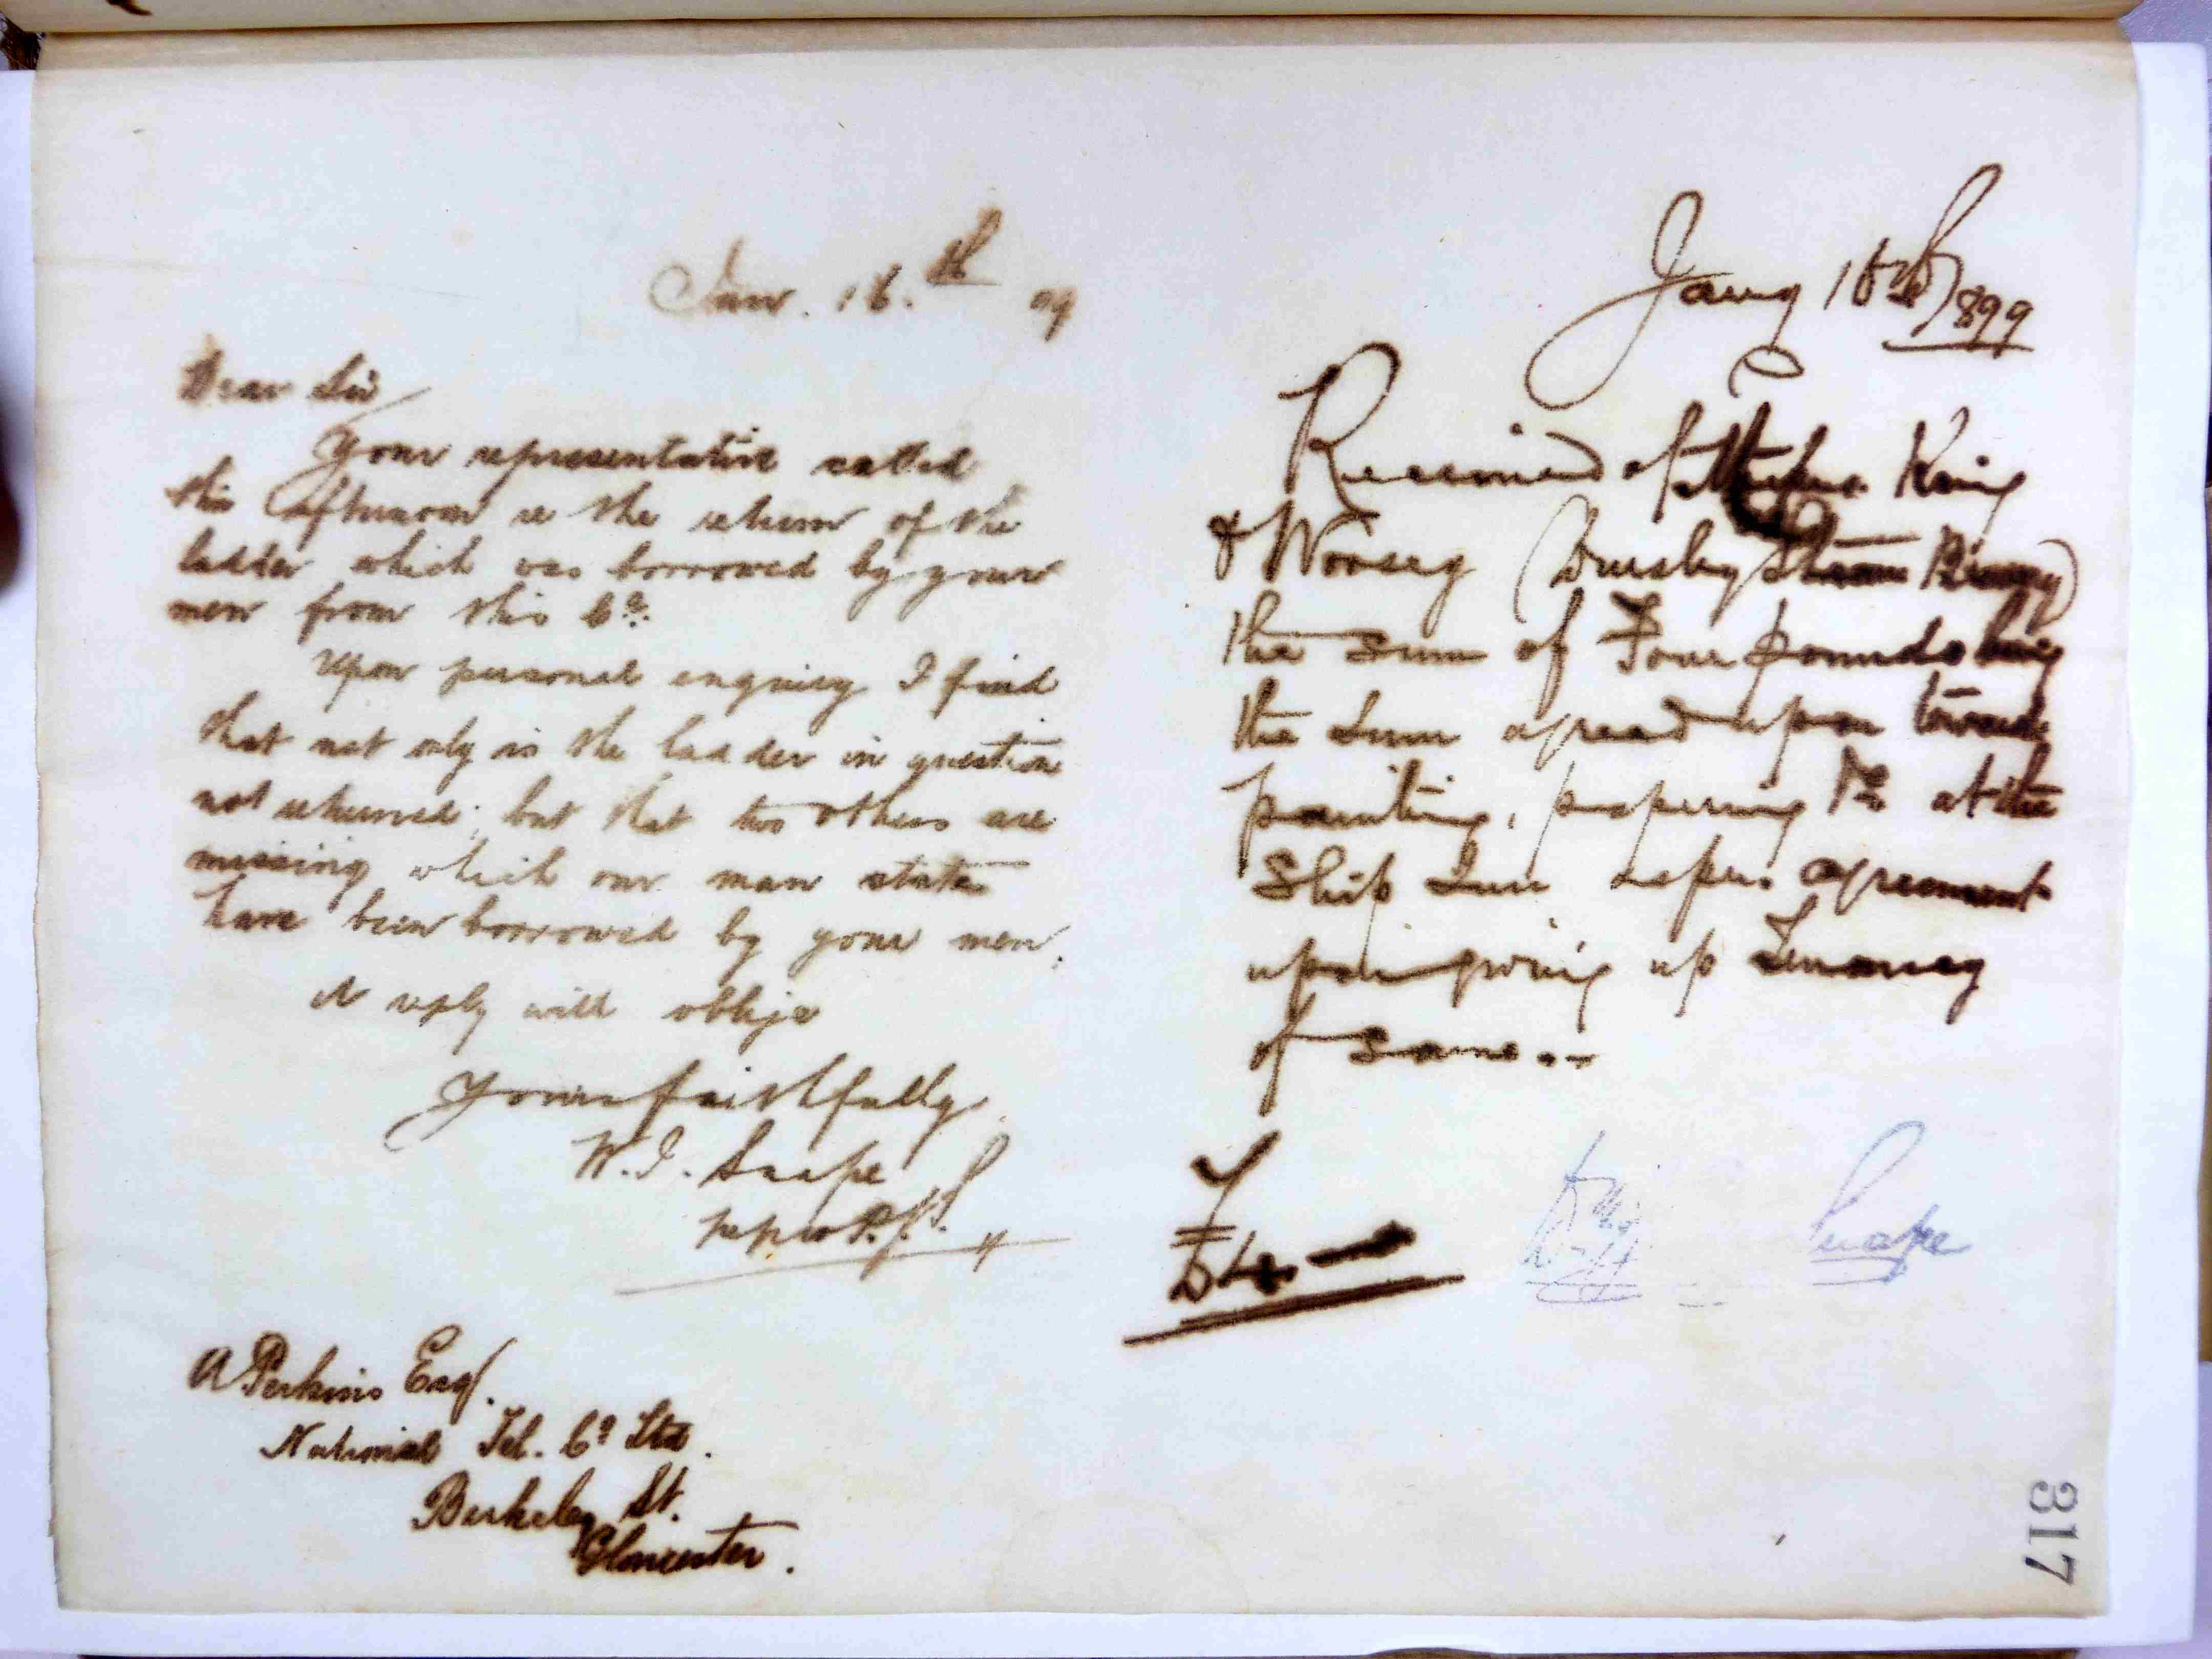 Jan. 16.th 99
Dear Sir
Your representative called
this afternoon re the return of the
ladder which was borrowed by your
men from this Co.
Upon personal enquiry I find
that not only is the ladder in question
not returned; but that two others are
missing which our man states
have been borrowed by your men.
A reply will oblige
Yours faithfully
W. J. Snape
A Perkins Esq.
National Tel. Co Ltd.
Berkeley St.
Gloucester.
Jany 16th 1899
Received of King
& Worsey (Dursley Steam Brewery)
the sum of Four pounds being
the sum agreed upon towards
painting, papering &c at the
Ship Inn as per agreement
upon giving up Tenancy
of same..
£4
Snape
317